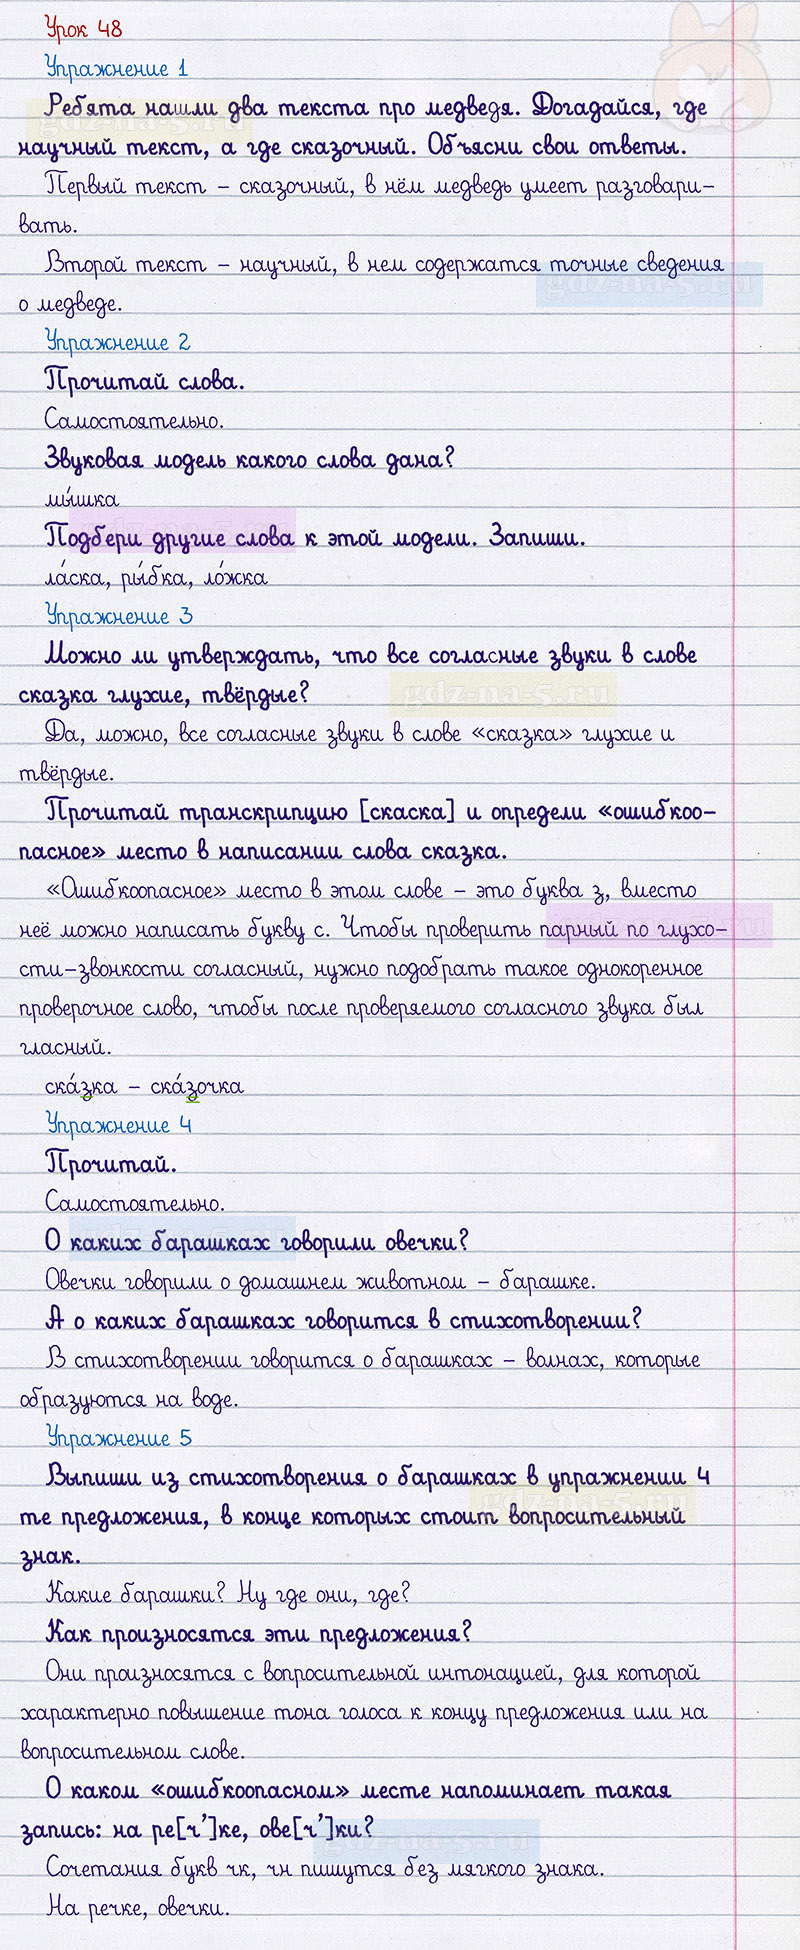 Урок 48
Упражнение 1
Ребята нашли два текста про медведя. Догадайся, где
научный текст, а где сказочный. Объясни свои ответы.
Первый текст – сказочный, в нём медведь умеет разговари–
вать.
Второй текст – научный, в нем содержатся точные сведения
о медведе.
Упражнение 2
Прочитай слова.
Самостоятельно.
Звуковая модель какого слова дана?
мы́шка
Подбери другие слова к этой модели. Запиши.
ла́ска, ры́бка, ло́жка
Упражнение 3
Можно ли утверждать, что все согласные звуки в слове
сказка глухие, твёрдые?
Да, можно, все согласные звуки в слове «сказка» глухие и
твёрдые.
Прочитай транскрипцию [скаска] и определи «ошибкоо–
пасное» место в написании слова сказка.
«Ошибкоопасное» место в этом слове – это буква з, вместо
неё можно написать букву с. Чтобы проверить парный по глухо–
сти–звонкости согласный, нужно подобрать такое однокоренное
проверочное слово, чтобы после проверяемого согласного звука был
гласный.
ска́зка – ска́зочка
Упражнение 4
Прочитай.
Самостоятельно.
О каких барашках говорили овечки?
Овечки говорили о домашнем животном – барашке.
А о каких барашках говорится в стихотворении?
В стихотворении говорится о барашках – волнах, которые
образуются на воде.
Упражнение 5
Выпиши из стихотворения о барашках в упражнении 4
те предложения, в конце которых стоит вопросительный
знак.
Какие барашки? Ну где они, где?
Как произносятся эти предложения?
Они произносятся с вопросительной интонацией, для которой
характерно повышение тона голоса к концу предложения или на
вопросительном слове.
О каком «ошибкоопасном» месте напоминает такая
запись: на ре[ч']ке, ове[ч']ки?
Сочетания букв чк, чн пишутся без мягкого знака.
На речке, овечки.
gdz-na-5.ru
gdz-na-5.ru
gdz-na-5.ru
gdz-na-5.ru
gdz-na-5.ru
gdz-na-5.ru
gdz-na-5.ru
gdz-na-5.ru